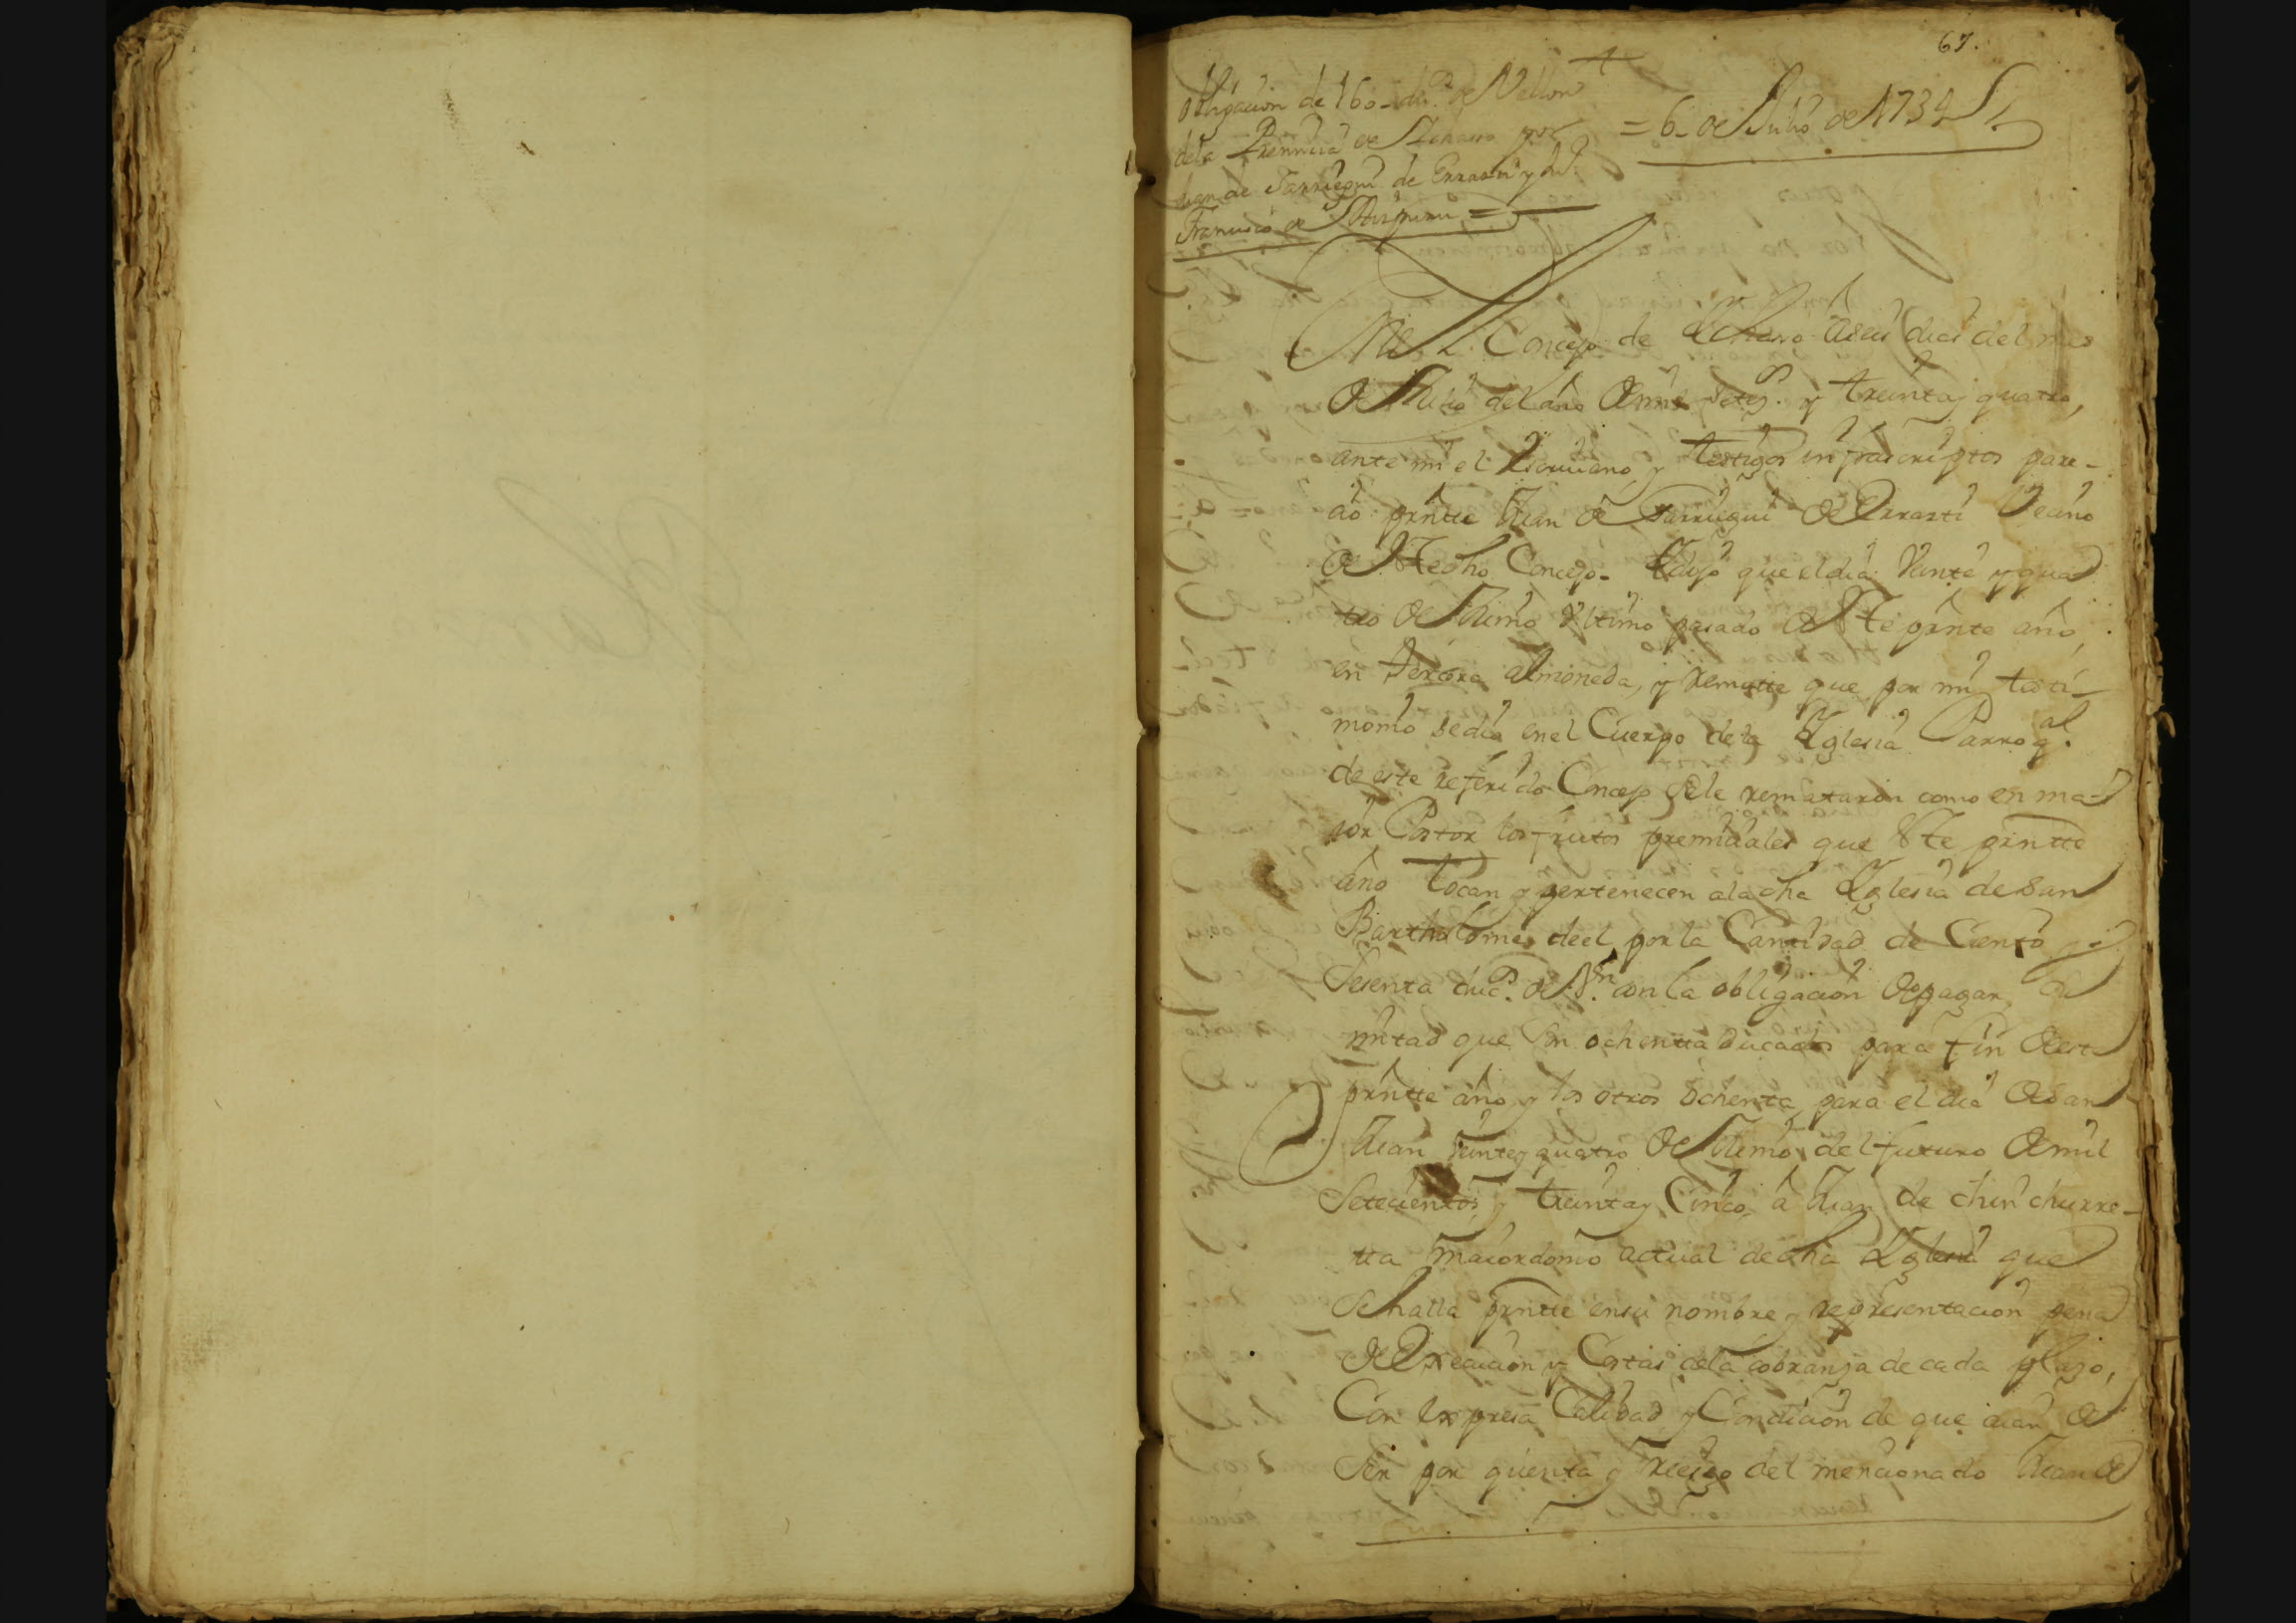 67.
obligacion de 160 du.s de Vellon
dela Premicia de Elcano por
Juan de Sarriegui de Errasti y Dn.
Francisco de
= 6 de Julio de 1734
En el Concejo de Elcano a seis dias del mes
de Julio del año de mil Seteçs. y treinta y quatro,
ante mi el Escriuano, y testigos infraescriptos pare-
cio prntte Juan de Sarriegui de Errasti Vecino
de este dho Concejo. Edijo que el dia Veinte y qua
tro de Junio Vltimo pasado de este prnte año,
en tercera almoneda, y rematte que por mi testi-
monio sedio en el Cuerpo dela Yglesia Parroql.
de este referido Concejo sele remataron como en ma-
ior Postor los frutos premiciales que este prntte
año tocan y pertenecen a la dha Yglesia de San
Bartholome deel por la Cantidad de Ciento y
Sesenta ducs. de Vn. con la obligacion de pagar, la
mitad que son ochentta ducados para fin de este
prntte año, y los otros ochenta para el dia de San
Juan Veinte y quatro de Junio del futuro de mil
Setecientos y treinta y Cinco, a Juan de chinchurre-
tta maiordomo actual de dha Yglesia que
se halla prntte en su nombre y representacion pena
de Execucion y Costas dela cobranza de cada plazo,
Con expresa Calidad y Condicion de que aian de
Ser por quenta y riesgo del mencionado Juan de